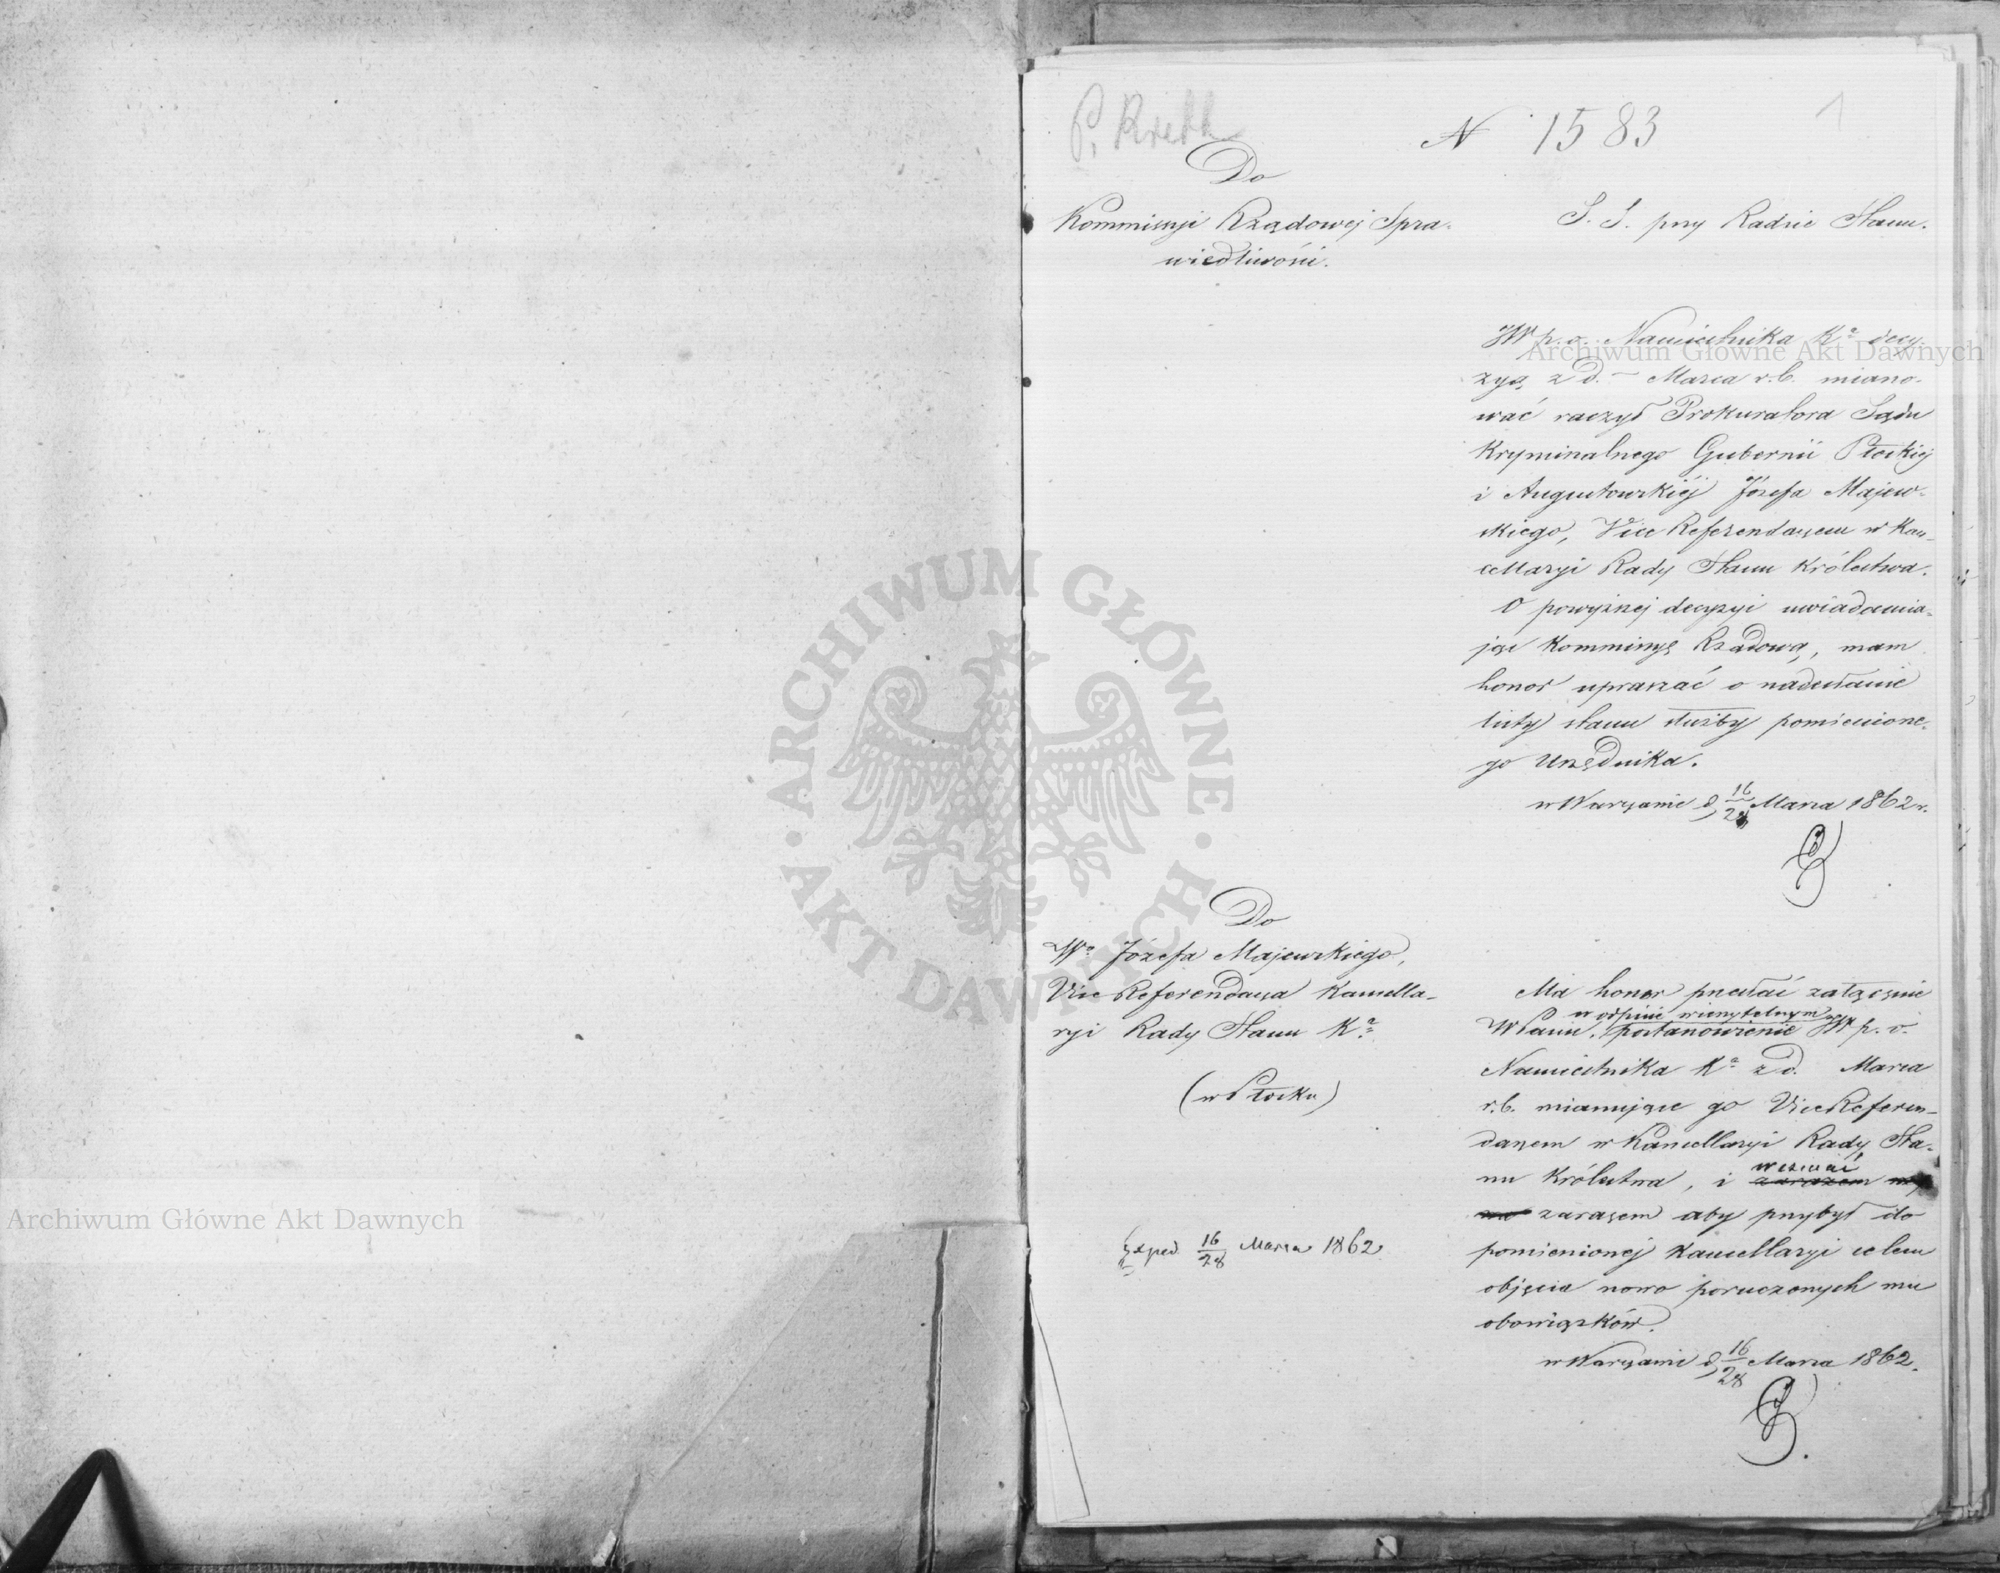 P. Kreth
N 1583
1
Do
Kommissyi Rządowej Spra-
wiedliwości.
S. S. przy Radzie Stanu.
JW p. o. Namiestnika Kᵃ decy-
zyą z d. — Marca r. b. miano-
wać raczył Prokuratora Sądu
Kryminalnego Gubernii Płockiej
i Augustowskiéj Józefa Majew-
skiego, Vice Referendarzem w Kan-
cellaryi Rady Stanu Królestwa.
O powyższej decyzyi uwiadamia-
jąc Kommissyę Rządową, mam
honor upraszać o nadesłanie
listy stanu służby pomienione-
go Urzędnika.
w Warszawie d. 16/28 Marca 1862 r.
Do
Wᵒ Józefa Majewskiego,
Vice Referendarza Kancella-
ryi Rady Stanu Kᵃ
(w Płocku)
Exped. 16/28 Marca 1862
Ma honor przesłać załącznie
w odpisie wierzytelnym
W Panu, postanowienie JW p. o.
Namiestnika Kᵃ z d. Marca
r. b. mianujące go Vice Referen-
darzem w Kancellaryi Rady Sta-
nu Królestwa, i zarazem
wezwać
zarazem aby przybył do
pomienionej Kancellaryi celem
objęcia nowo poruczonych mu
obowiązków.
w Warszawie d. 16/28 Marca 1862.
Archiwum Główne Akt Dawnych
Archiwum Główne Akt Dawnych
ARCHIWUM GŁÓWNE · AKT DAWNYCH ·